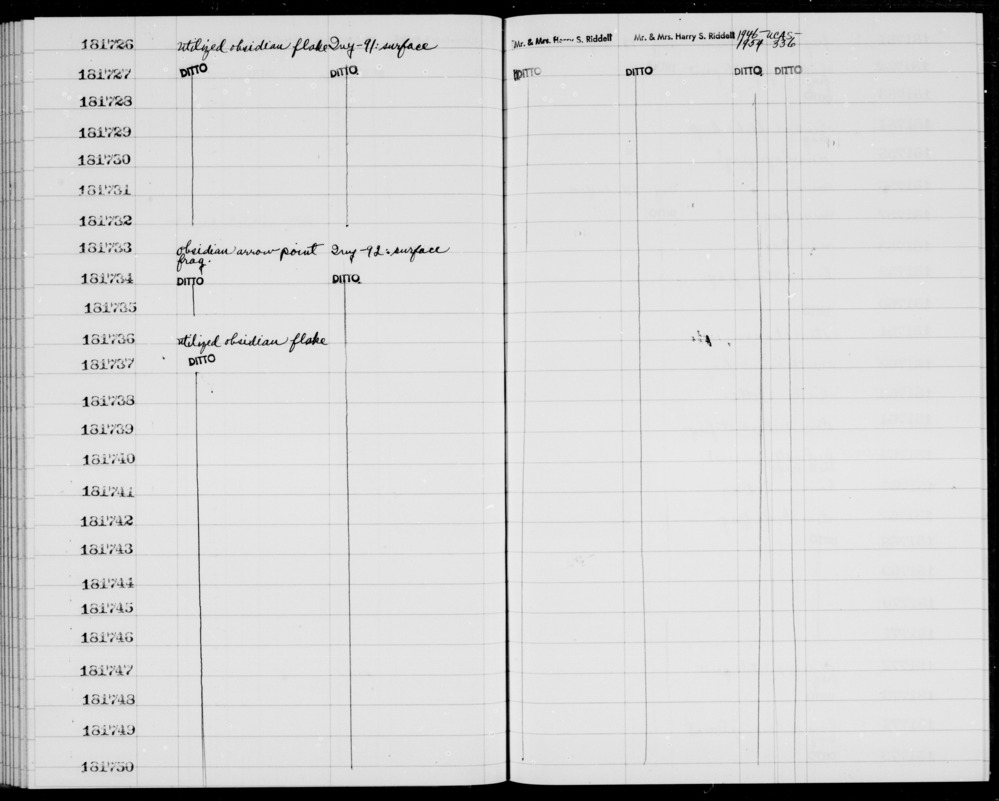 181726 utilized obsidian flake Iny-91: surface Mr. & Mrs. Harry S. Riddell Mr. & Mrs. Harry S. Riddell 1946- UCAS-
1954 336
181727 DITTO DITTO DITTO DITTO DITTO DITTO
181728
181729
181730
181731
181732
181733 obsidian arrow point Iny-92: surface
frag.
181734 DITTO DITTO
181735
181736 utilized obsidian flake
181737 DITTO
181738
181739
181740
181741
181742
181743
181744
181745
181746
181747
181748
181749
181750